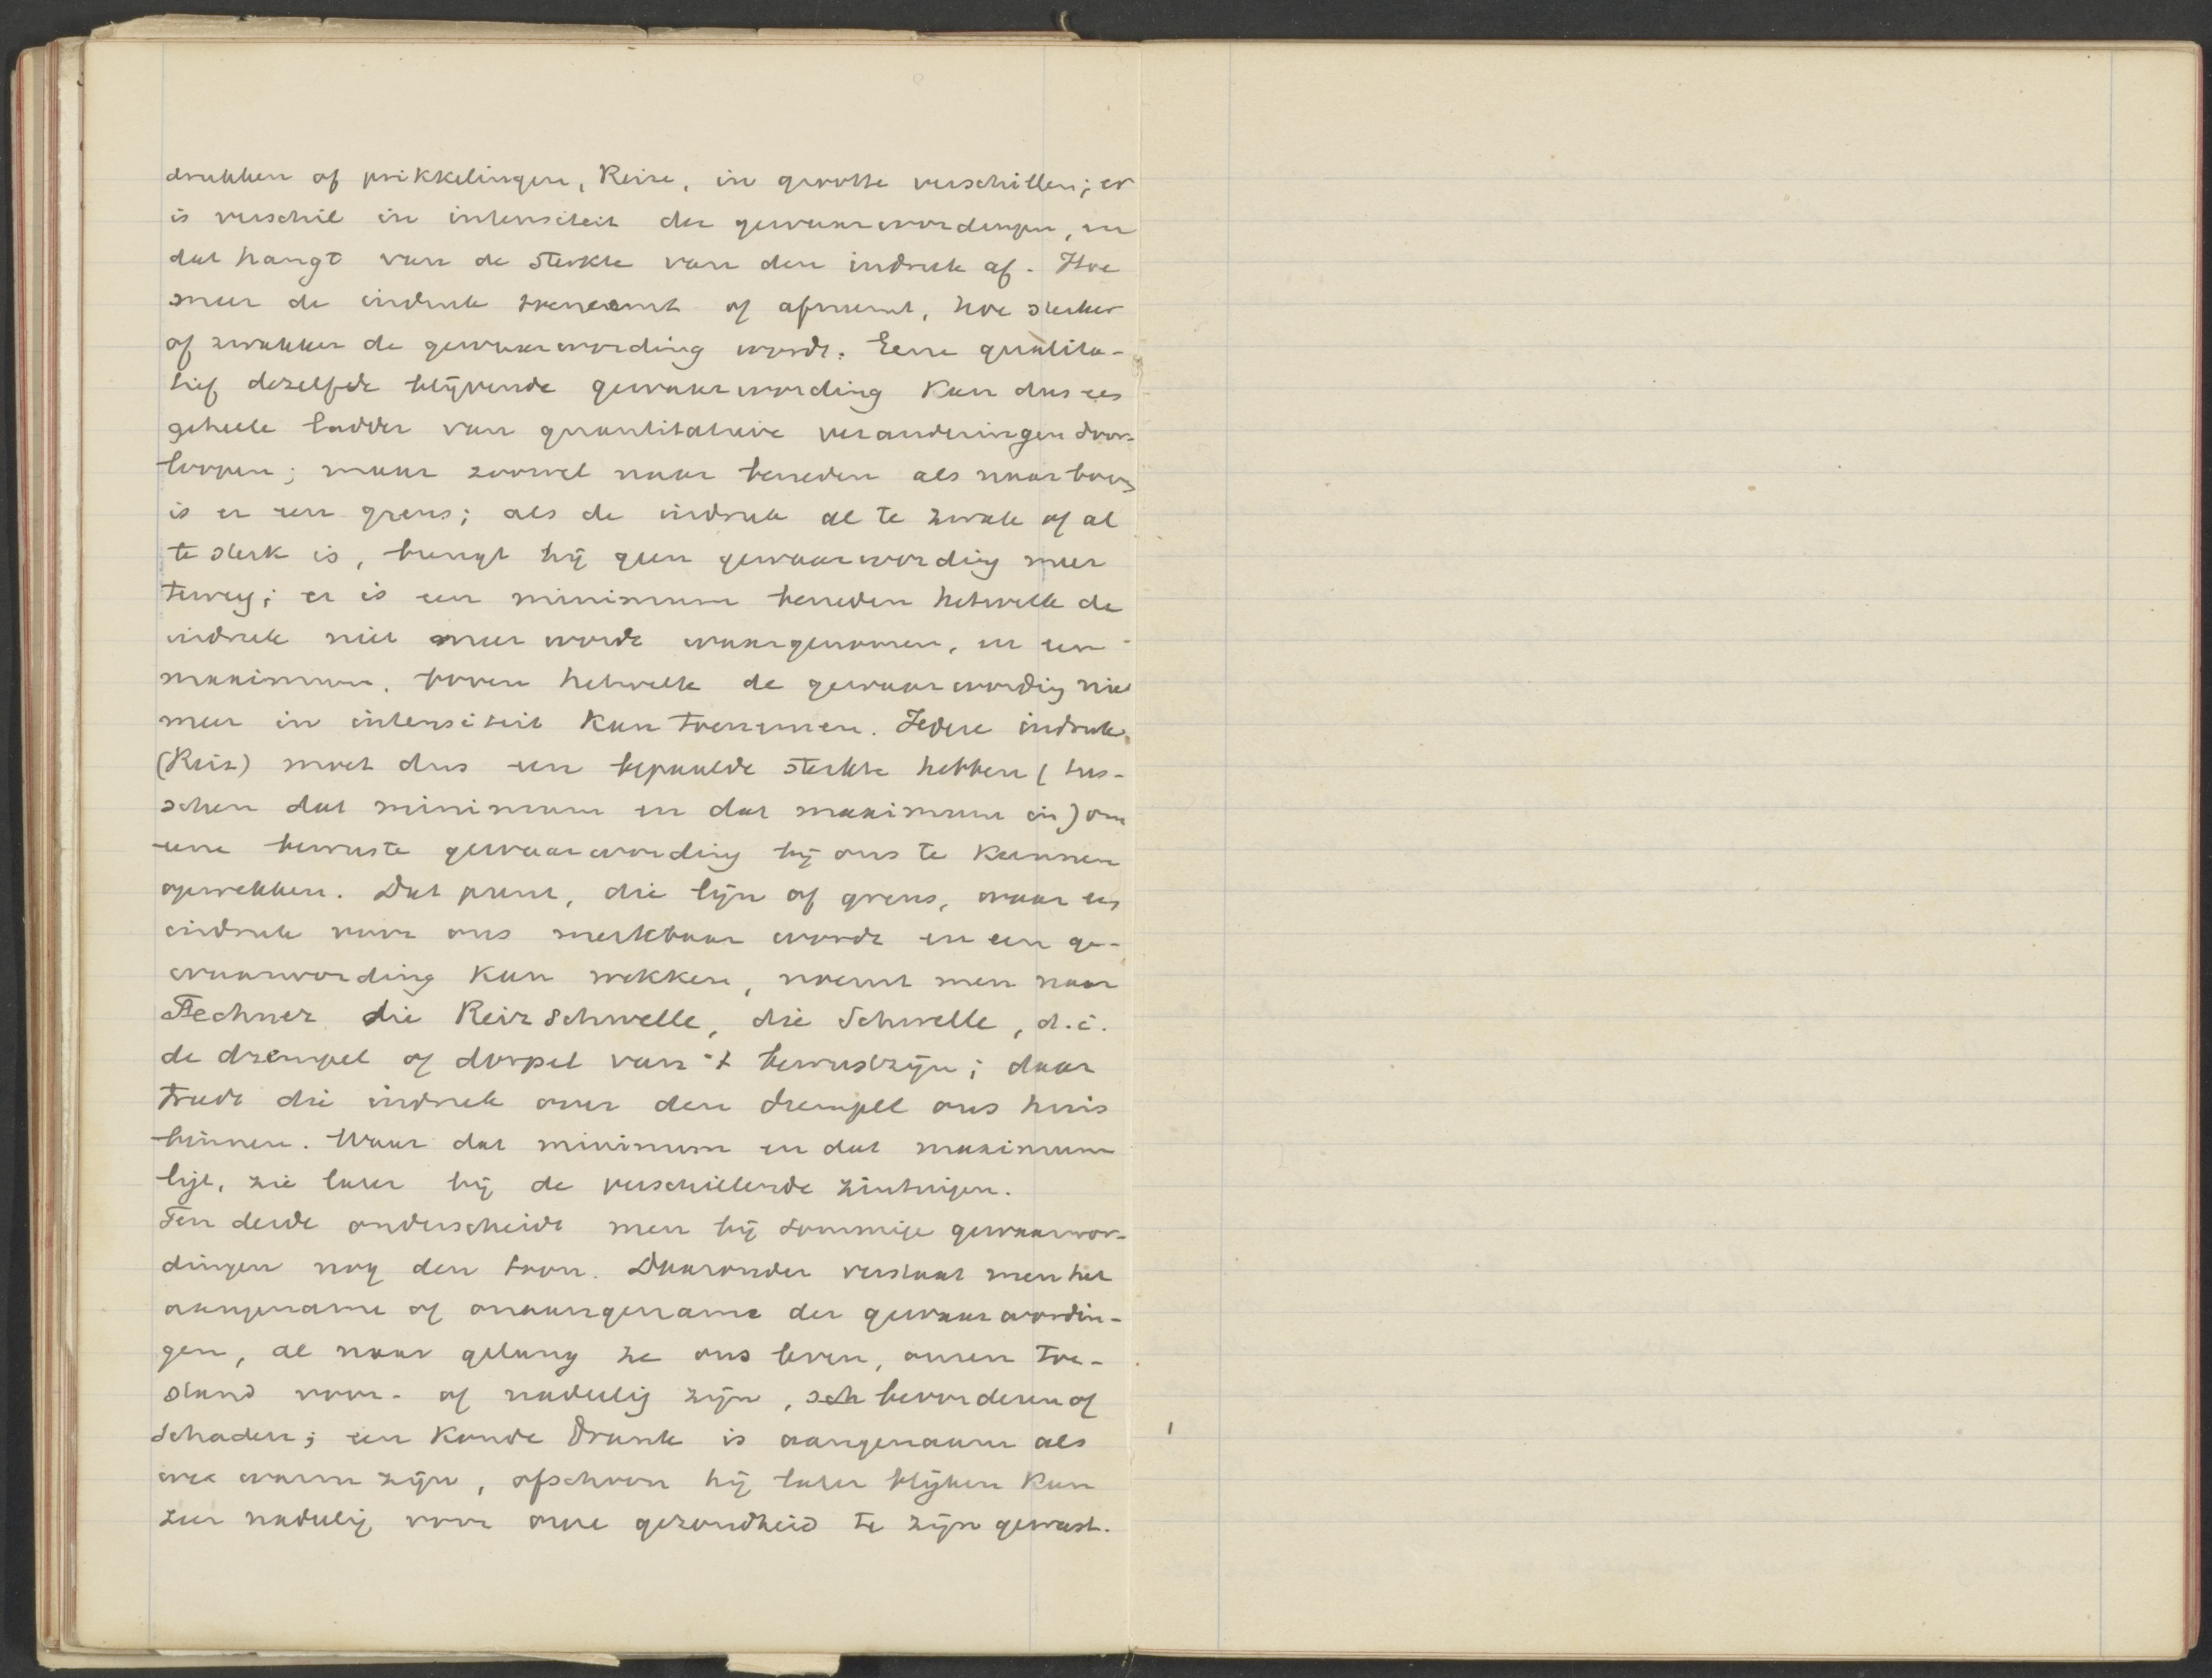 drukken of prikkelingen, Reize, in grootte verschillen; er
is verschil in intensiteit der gewaarwordingen, en
dat hangt van de sterkte van den indruk af. Hoe
meer de indruk toeneemt of afneemt, hoe sterker
of zwakker de gewaarwording wordt. Eene qualita-
tief dezelfde blijvende gewaarwording kan dus een
geheele ladder van quantitatieve veranderingen door-
loopen; maar zoowel naar beneden als naar boven
is er een grens; als de indruk al te zwak of al
te sterk is, brengt hij geen gewaarwording meer
teweeg; er is een minimum beneden hetwelk de
indruk niet meer wordt waargenomen, en een
maximum, boven hetwelk de gewaarwording niet
meer in intensiteit kan toenemen. Iedere indruk
(Reiz) moet dus een bepaalde sterkte hebben (tus-
schen dat minimum en dat maximum in) om
eene bewuste gewaarwording bij ons te kunnen
opwekken. Dat punt, die lijn of grens, waar een
indruk voor ons merkbaar wordt en een ge-
waarwording kan wekken, noemt men naar
Fechner die Reizschwelle, die Schwelle, d.i.
de drempel of dorpel van 't bewustzijn; daar
treedt die indruk over den drempel ons huis
binnen. Waar dat minimum en dat maximum
ligt, zie later bij de verschillende zintuigen.
Ten derde onderscheidt men bij sommige gewaarwor-
dingen nog den toon. Daaronder verstaat men het
aangename of onaangename der gewaarwordin-
gen, al naar gelang ze ons leven, onzen toe-
stand voor- of nadeelig zijn, bevorderen of
schaden; een koude dronk is aangenaam als
we warm zijn, ofschoon hij later blijken kan
zeer nadeelig voor onze gezondheid te zijn geweest.